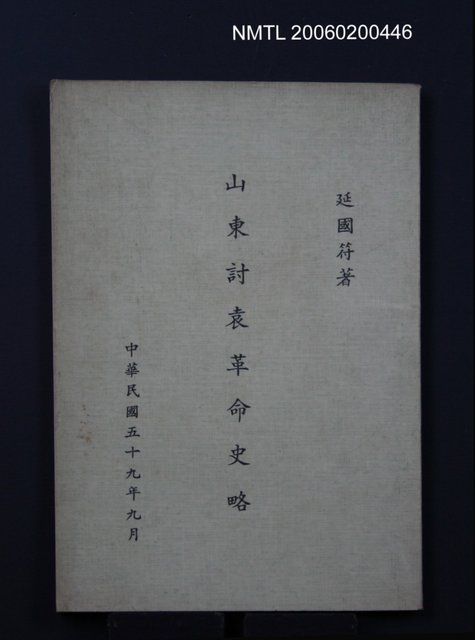 NMTL 20060200446
延國符著
山東討袁革命史略
中華民國五十九年九月